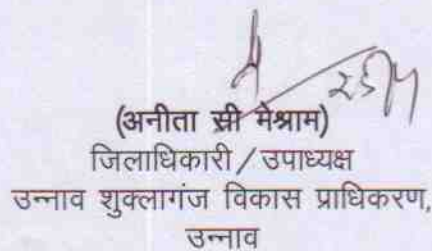 (अनीता सी मेश्राम)
जिलाधिकारी / उपाध्यक्ष
उन्नाव शुक्लागंज विकास प्राधिकरण,
उन्नाव